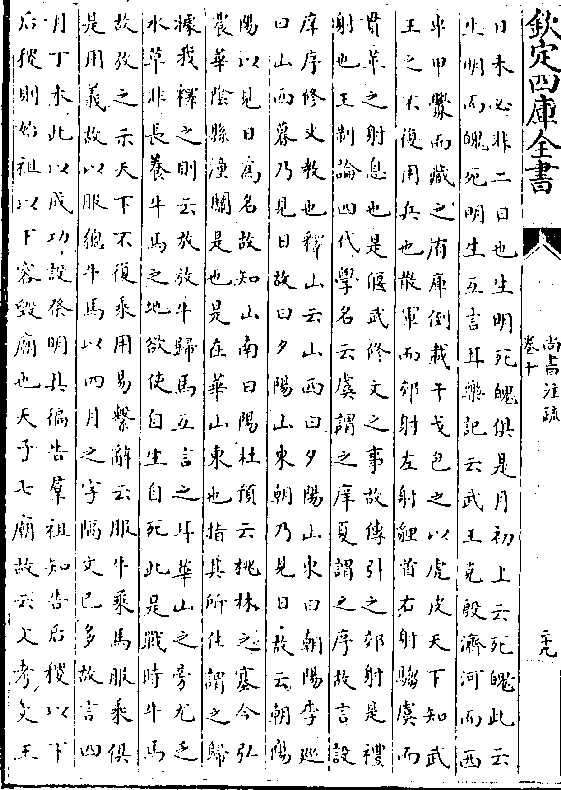 欽定四庫全書
尚書注疏
卷十
日未必非二日也生明死魄俱是月初上云死魄此云
生明而魄死明生互言耳樂記云武王克殷濟河而西
車甲釁而藏之府庫倒載干戈包之以虎皮天下知武
王之不復用兵也散軍而郊射左射貍首右射騶虞而
貫革之射息也是偃武修文之事故傳引之郊射是禮
射也王制論四代學名云虞謂之庠夏謂之序故言設
庠序修文教也釋山云山西曰夕陽山東曰朝陽李廵
曰山西暮乃見日故曰夕陽山東朝乃見日故云朝陽
陽以見日為名故知山南曰陽杜預云桃林之塞今弘
農華陰縣潼關是也是在華山東也指其所往謂之歸
據我釋之則云放放牛歸馬互言之耳華山之旁尤乏
水草非長養牛馬之地欲使自生自死此是戰時牛馬
故放之示天下不復乘用易繫辭云服牛乘馬服乘俱
是用義故以服總牛馬以四月之字隔文已多故言四
月丁未此以成功設祭明其徧告羣祖知告后稷以下
后稷則始祖以下容毀廟也天子七廟故云文考文王